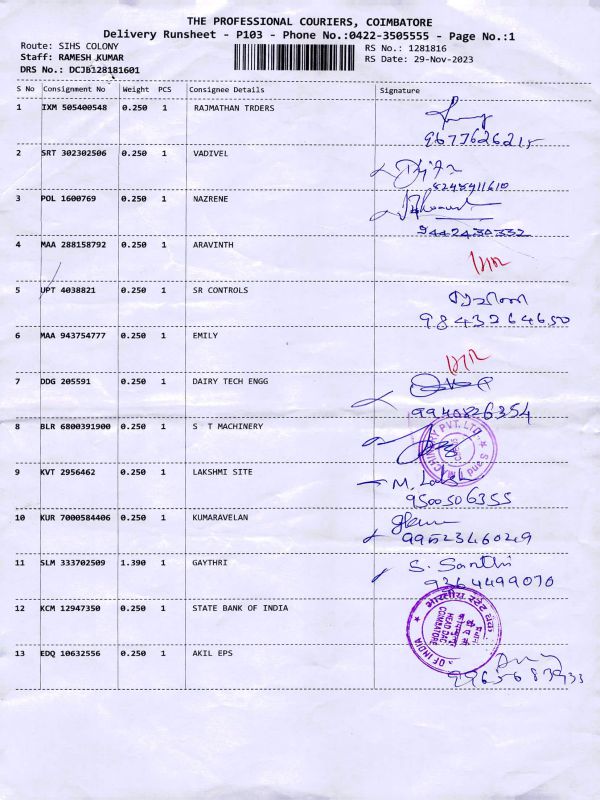 THE PROFESSIONAL COURIERS, COIMBATORE
Delivery Runsheet - P103 - Phone No.:0422-3505555 - Page No.:1
Route: SIHS COLONY
RS No.: 1281816
Staff: RAMESH KUMAR
RS Date: 29-Nov-2023
DRS No.: DCJB128181601
S No Consignment No Weight PCS Consignee Details Signature
1 IXM 505400548 0.250 1 RAJMATHAN TRDERS
9677626215
2 SRT 302302506 0.250 1 VADIVEL
8248411610
3 POL 1600769 0.250 1 NAZRENE
9442430332
4 MAA 288158792 0.250 1 ARAVINTH
5 UPT 4038821 0.250 1 SR CONTROLS
9843264650
6 MAA 943754777 0.250 1 EMILY
7 DDG 205591 0.250 1 DAIRY TECH ENGG
9940826354
8 BLR 6800391900 0.250 1 S T MACHINERY
MACHINERY PVT. LTD.
9 KVT 2956462 0.250 1 LAKSHMI SITE M.
9500506355
10 KUR 7000584406 0.250 1 KUMARAVELAN
9952346029
11 SLM 333702509 1.390 1 GAYTHRI S. Santhi
9364499070
12 KCM 12947350 0.250 1 STATE BANK OF INDIA
भारतीय स्टेट बैंक
COIMBATORE
OF INDIA
13 EDQ 10632556 0.250 1 AKIL EPS
9965683933